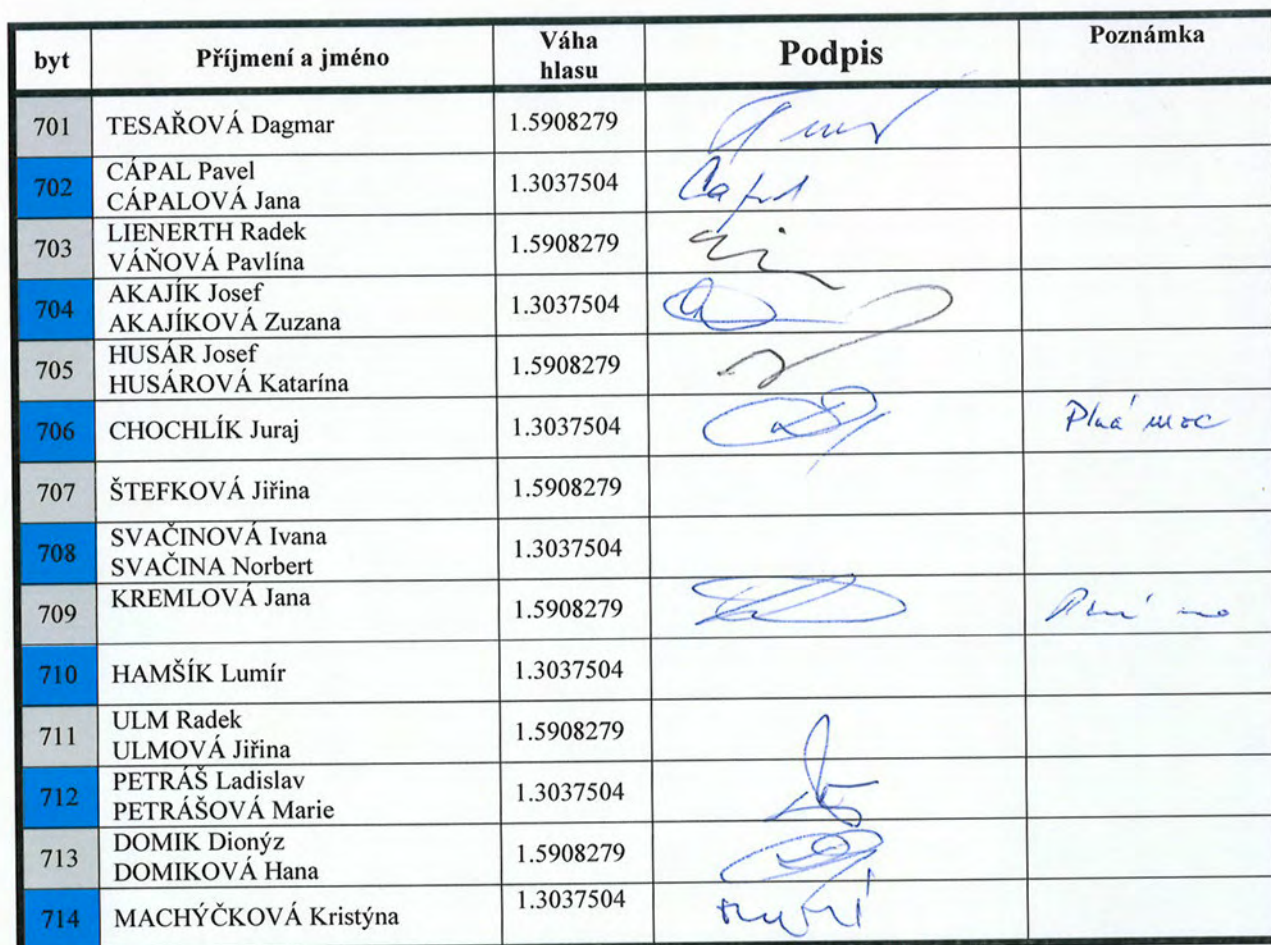 byt Příjmení a jméno Váha hlasu Podpis Poznámka
701 TESAŘOVÁ Dagmar 1.5908279
702 CÁPAL Pavel
CÁPALOVÁ Jana 1.3037504
703 LIENERTH Radek
VÁŇOVÁ Pavlína 1.5908279
704 AKAJÍK Josef
AKAJÍKOVÁ Zuzana 1.3037504
705 HUSÁR Josef
HUSÁROVÁ Katarína 1.5908279
706 CHOCHLÍK Juraj 1.3037504 Plná moc
707 ŠTEFKOVÁ Jiřina 1.5908279
708 SVAČINOVÁ Ivana
SVAČINA Norbert 1.3037504
709 KREMLOVÁ Jana 1.5908279
710 HAMŠÍK Lumír 1.3037504
711 ULM Radek
ULMOVÁ Jiřina 1.5908279
712 PETRÁŠ Ladislav
PETRÁŠOVÁ Marie 1.3037504
713 DOMIK Dionýz
DOMIKOVÁ Hana 1.5908279
714 MACHÝČKOVÁ Kristýna 1.3037504